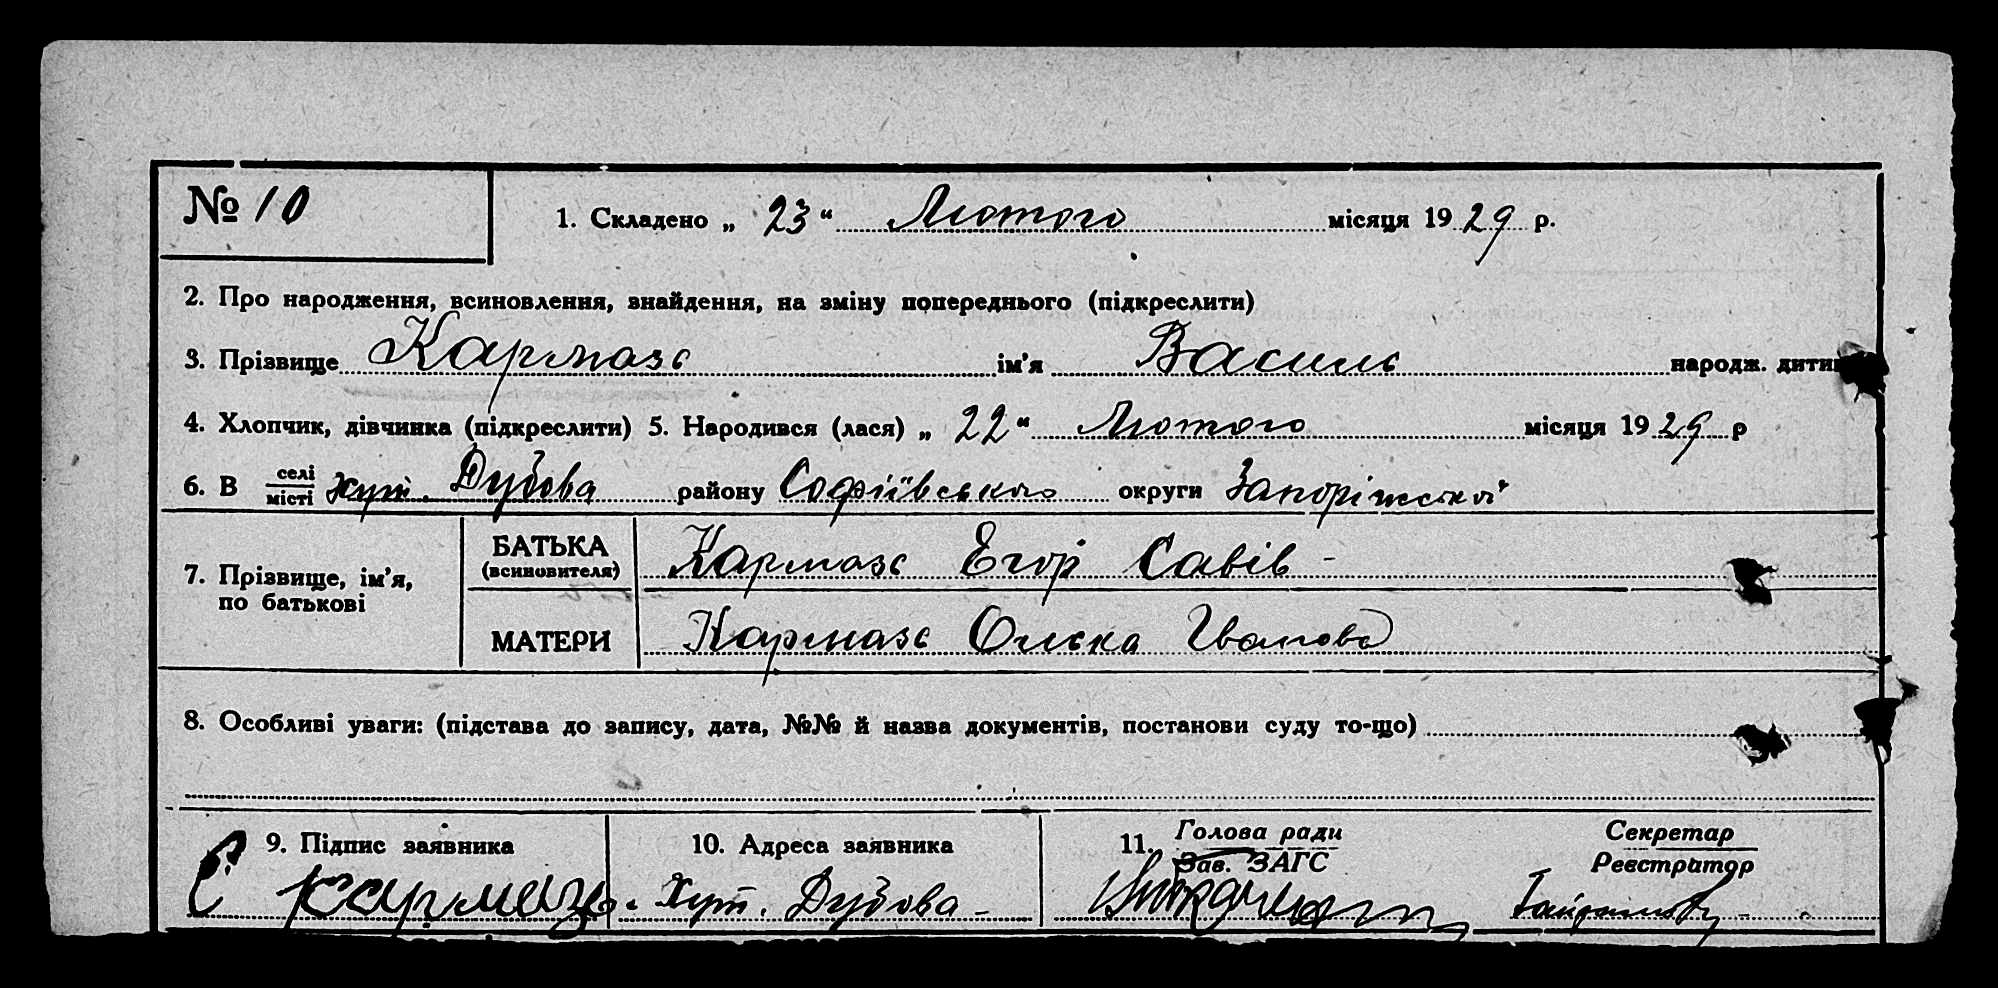 № 10
1. Складено „ 23 “ Лютого місяця 1929 р.
2. Про народження, всиновлення, знайдення, на зміну попереднього (підкреслити)
3. Прізвище Кармазь ім’я Василь народж. дитини
4. Хлопчик, дівчинка (підкреслити) 5. Народився (лася) „ 22 “ Лютого місяця 1929 р
6. В селі/місті хут. Дубова району Софіївського округи Запоріжської
7. Прізвище, ім’я, по батькові
БАТЬКА (всиновителя) Кармазь Егор Савів -
МАТЕРИ Кармазь Олька Іванова
8. Особливі уваги: (підстава до запису, дата, №№ й назва документів, постанови суду то-що)
9. Підпис заявника 10. Адреса заявника 11. Голова ради Секретар
Зав. ЗАГС Реєстратор
Е кармазь. Хут. Дубова -